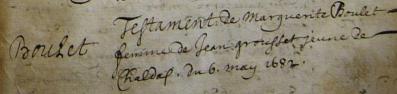 Testament de Marguerite Boulet
Boulet
femme de Jean grousset jeune de
Chaldas. du 6. may 1682